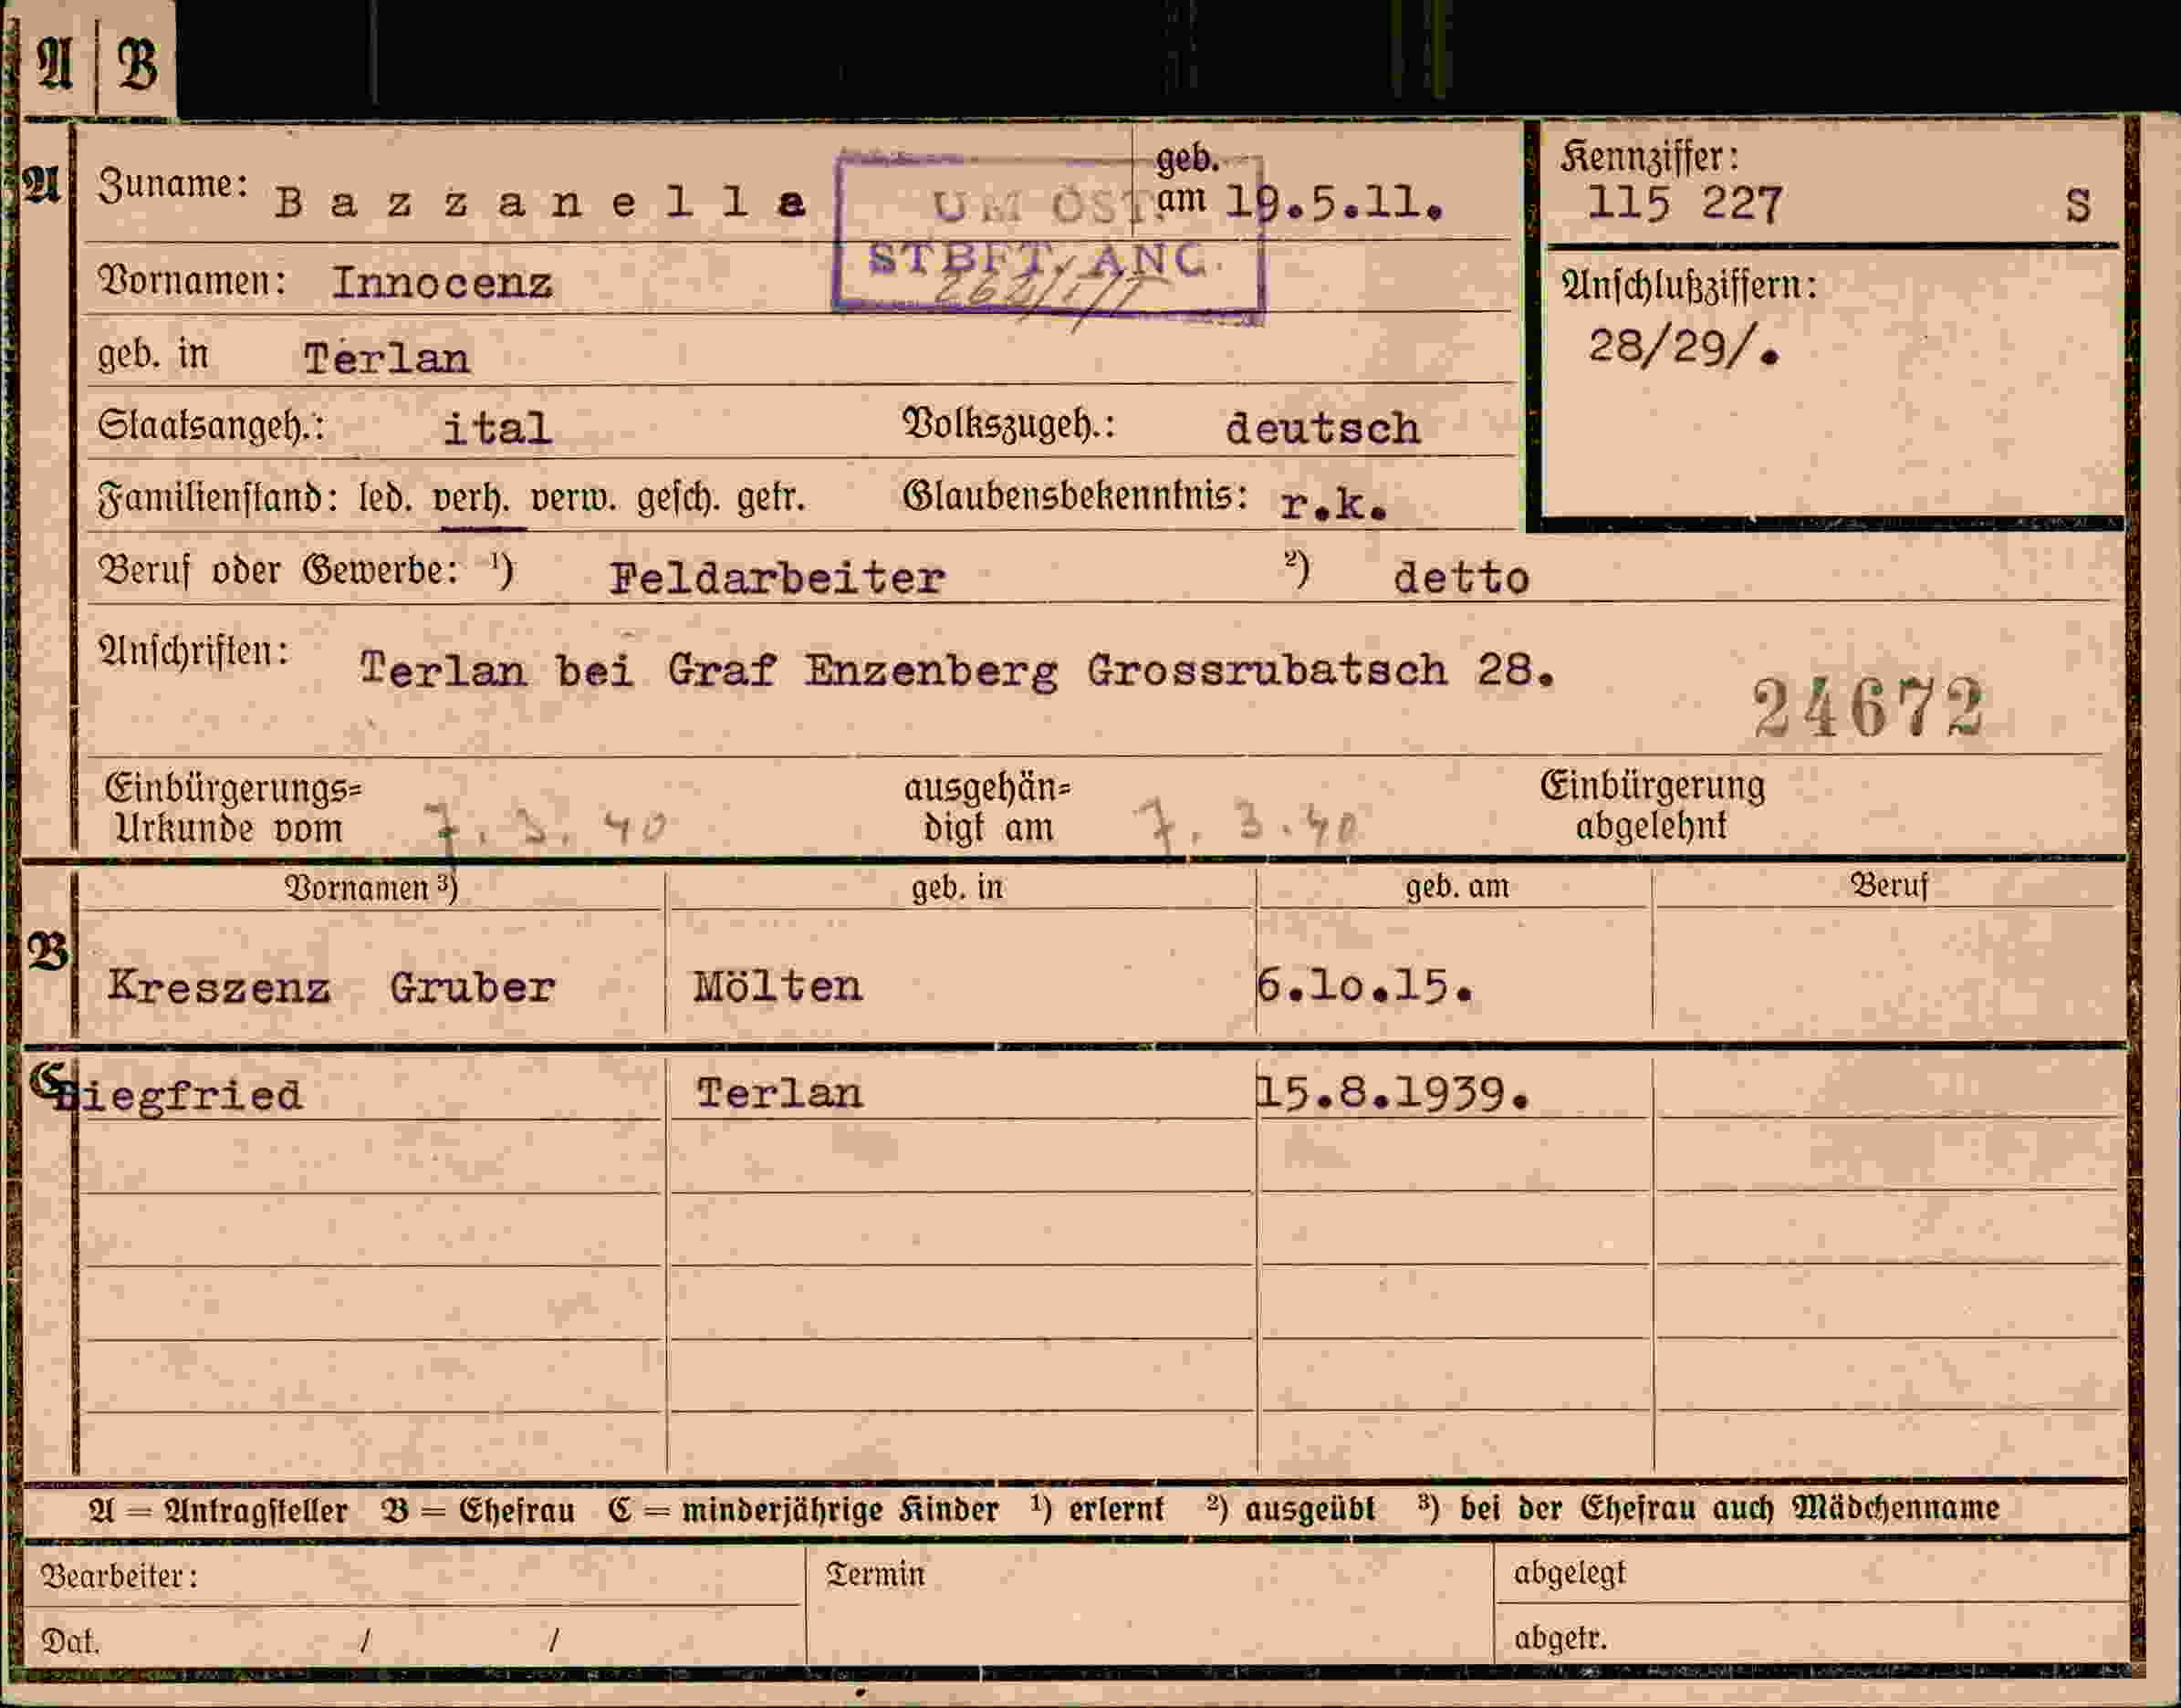 A | B
A
Zuname: Bazzanella
geb. am 19.5.11.
UM OST.
STBFT. ANC.
Kennziffer:
115 227 S
Vornamen: Innocenz
Anschlußziffern:
28/29/.
geb. in Terlan
Staatsangeh.: ital Volkszugeh.: deutsch
Familienstand: led. verh. verw. gesch. getr. Glaubensbekenntnis: r.k.
Beruf oder Gewerbe: ¹) Feldarbeiter ²) detto
Anschriften: Terlan bei Graf Enzenberg Grossrubatsch 28.
24672
Einbürgerungs=
Urkunde vom 7. 3. 40
ausgehän=
digt am 7. 3. 40
Einbürgerung
abgelehnt
Vornamen ³) geb. in geb. am Beruf
B
Kreszenz Gruber Mölten 6.10.15.
C
Siegfried Terlan 15.8.1939.
A = Antragsteller B = Ehefrau C = minderjährige Kinder ¹) erlernt ²) ausgeübt ³) bei der Ehefrau auch Mädchenname
Bearbeiter: Termin abgelegt
Dat. / / abgetr.